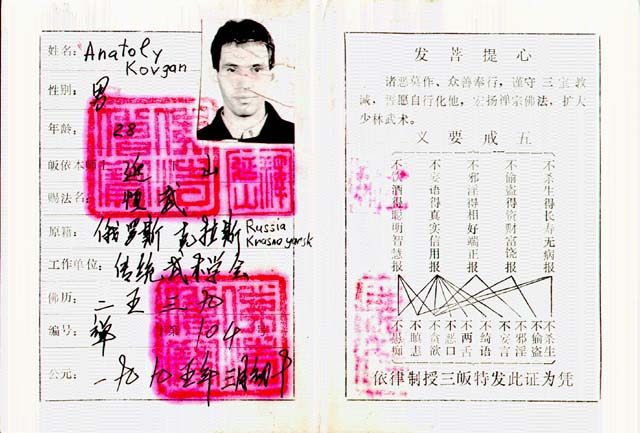 姓名: Anatoly
Kovgan
性别: 男
年龄: 28
皈依本师上 延 下 山
赐法名: 武
原籍: 俄罗斯 克拉斯 Russia
Krasnoyarsk
工作单位: 传统武术学会
佛历: 二五三九
编号: 禅 104
公元: 一九九五年三月初
发菩提心
诸恶莫作、众善奉行,谨守三宝教
减,普愿自行化他,宏扬禅宗佛法,扩大
少林武术。
义要戒五
不杀生得长寿无病报
不偷盗得资财富饶报
不邪淫得相好端正报
不妄语得真实信用报
不饮酒得聪明智慧报
不杀生
不偷盗
不邪淫
不妄言
不绮语
不两舌
不恶口
不贪欲
不瞋恚
不愚痴
依律制授三皈特发此证为凭